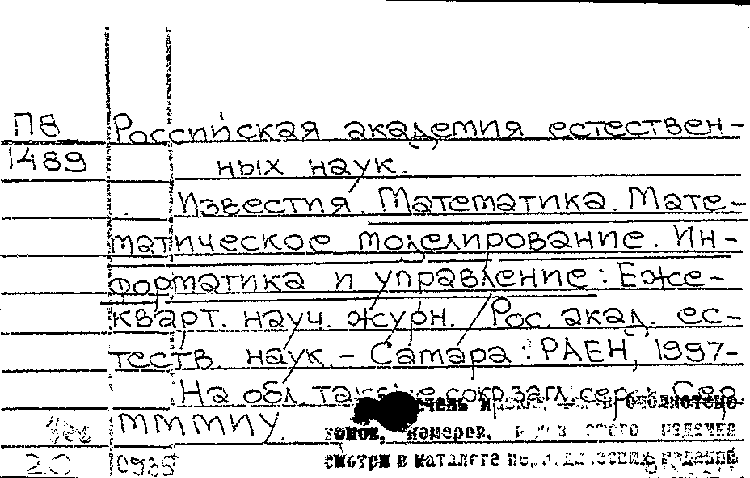 ПВ Российская академия естествен-
1489 ных наук.
Известия. Математика. Мате-
матическое моделирование. Ин-
форматика и управление: Еже-
кварт. науч. журн. Рос. акад. ес-
теств. наук. - Самара: РАЕН, 1997-
На обл. также сокр. загл. сер.: Сер
МММИУ.
томов, номеров, этого издания
20 смотри в каталоге